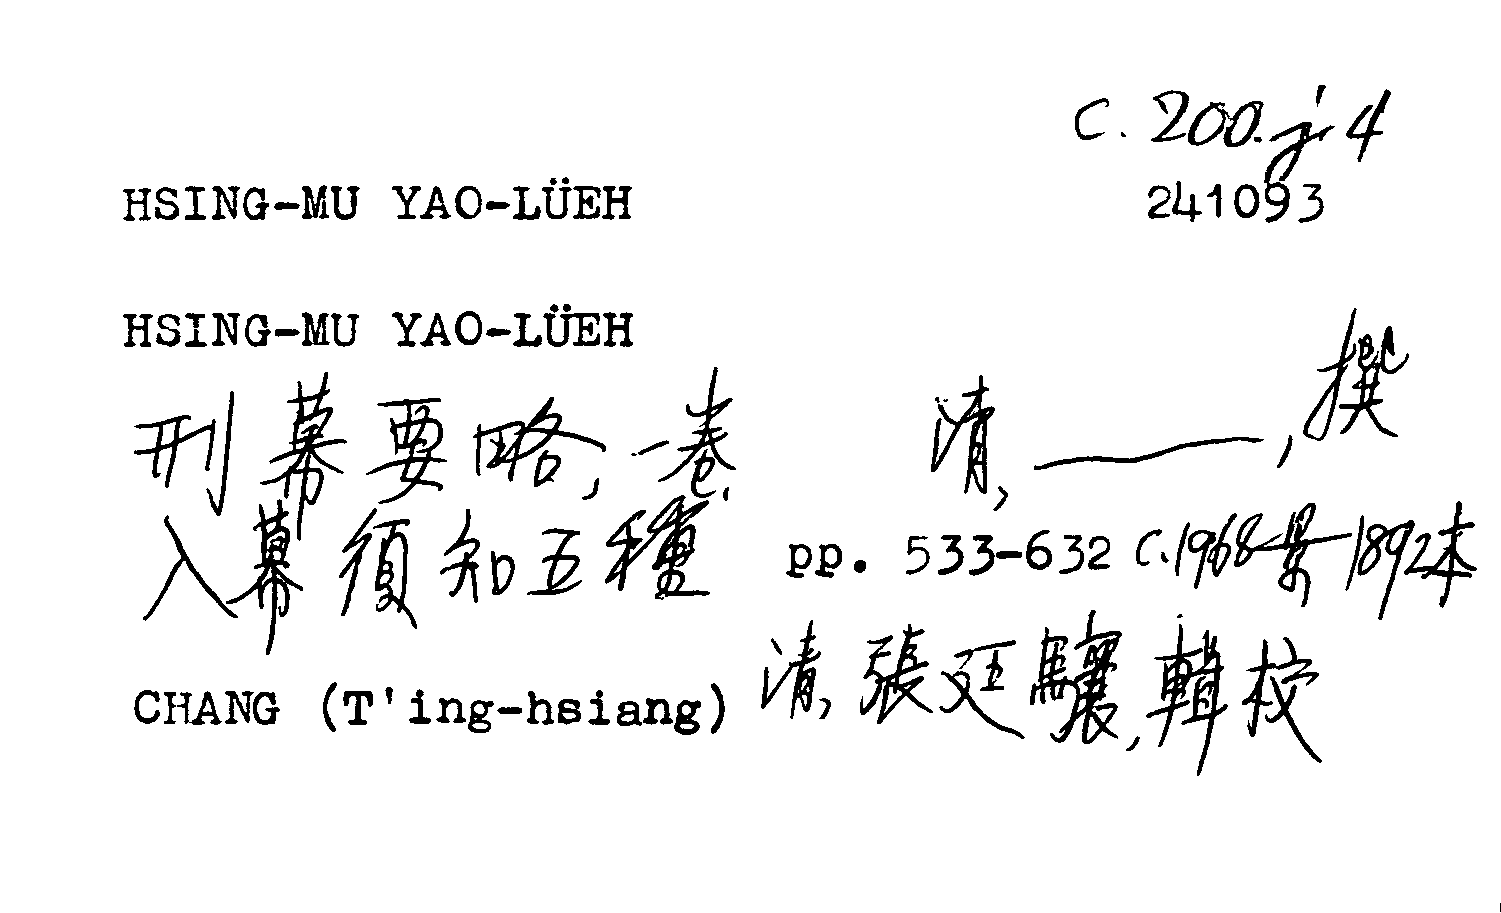 C. 200.j.4
HSING-MU YAO-LÜEH 241093
HSING-MU YAO-LÜEH
刑幕要略, 一卷. 清, ———, 撰
入幕須知五種 pp. 533-632 C.1968景1892本
CHANG (T'ing-hsiang) 清, 張廷驤, 輯校